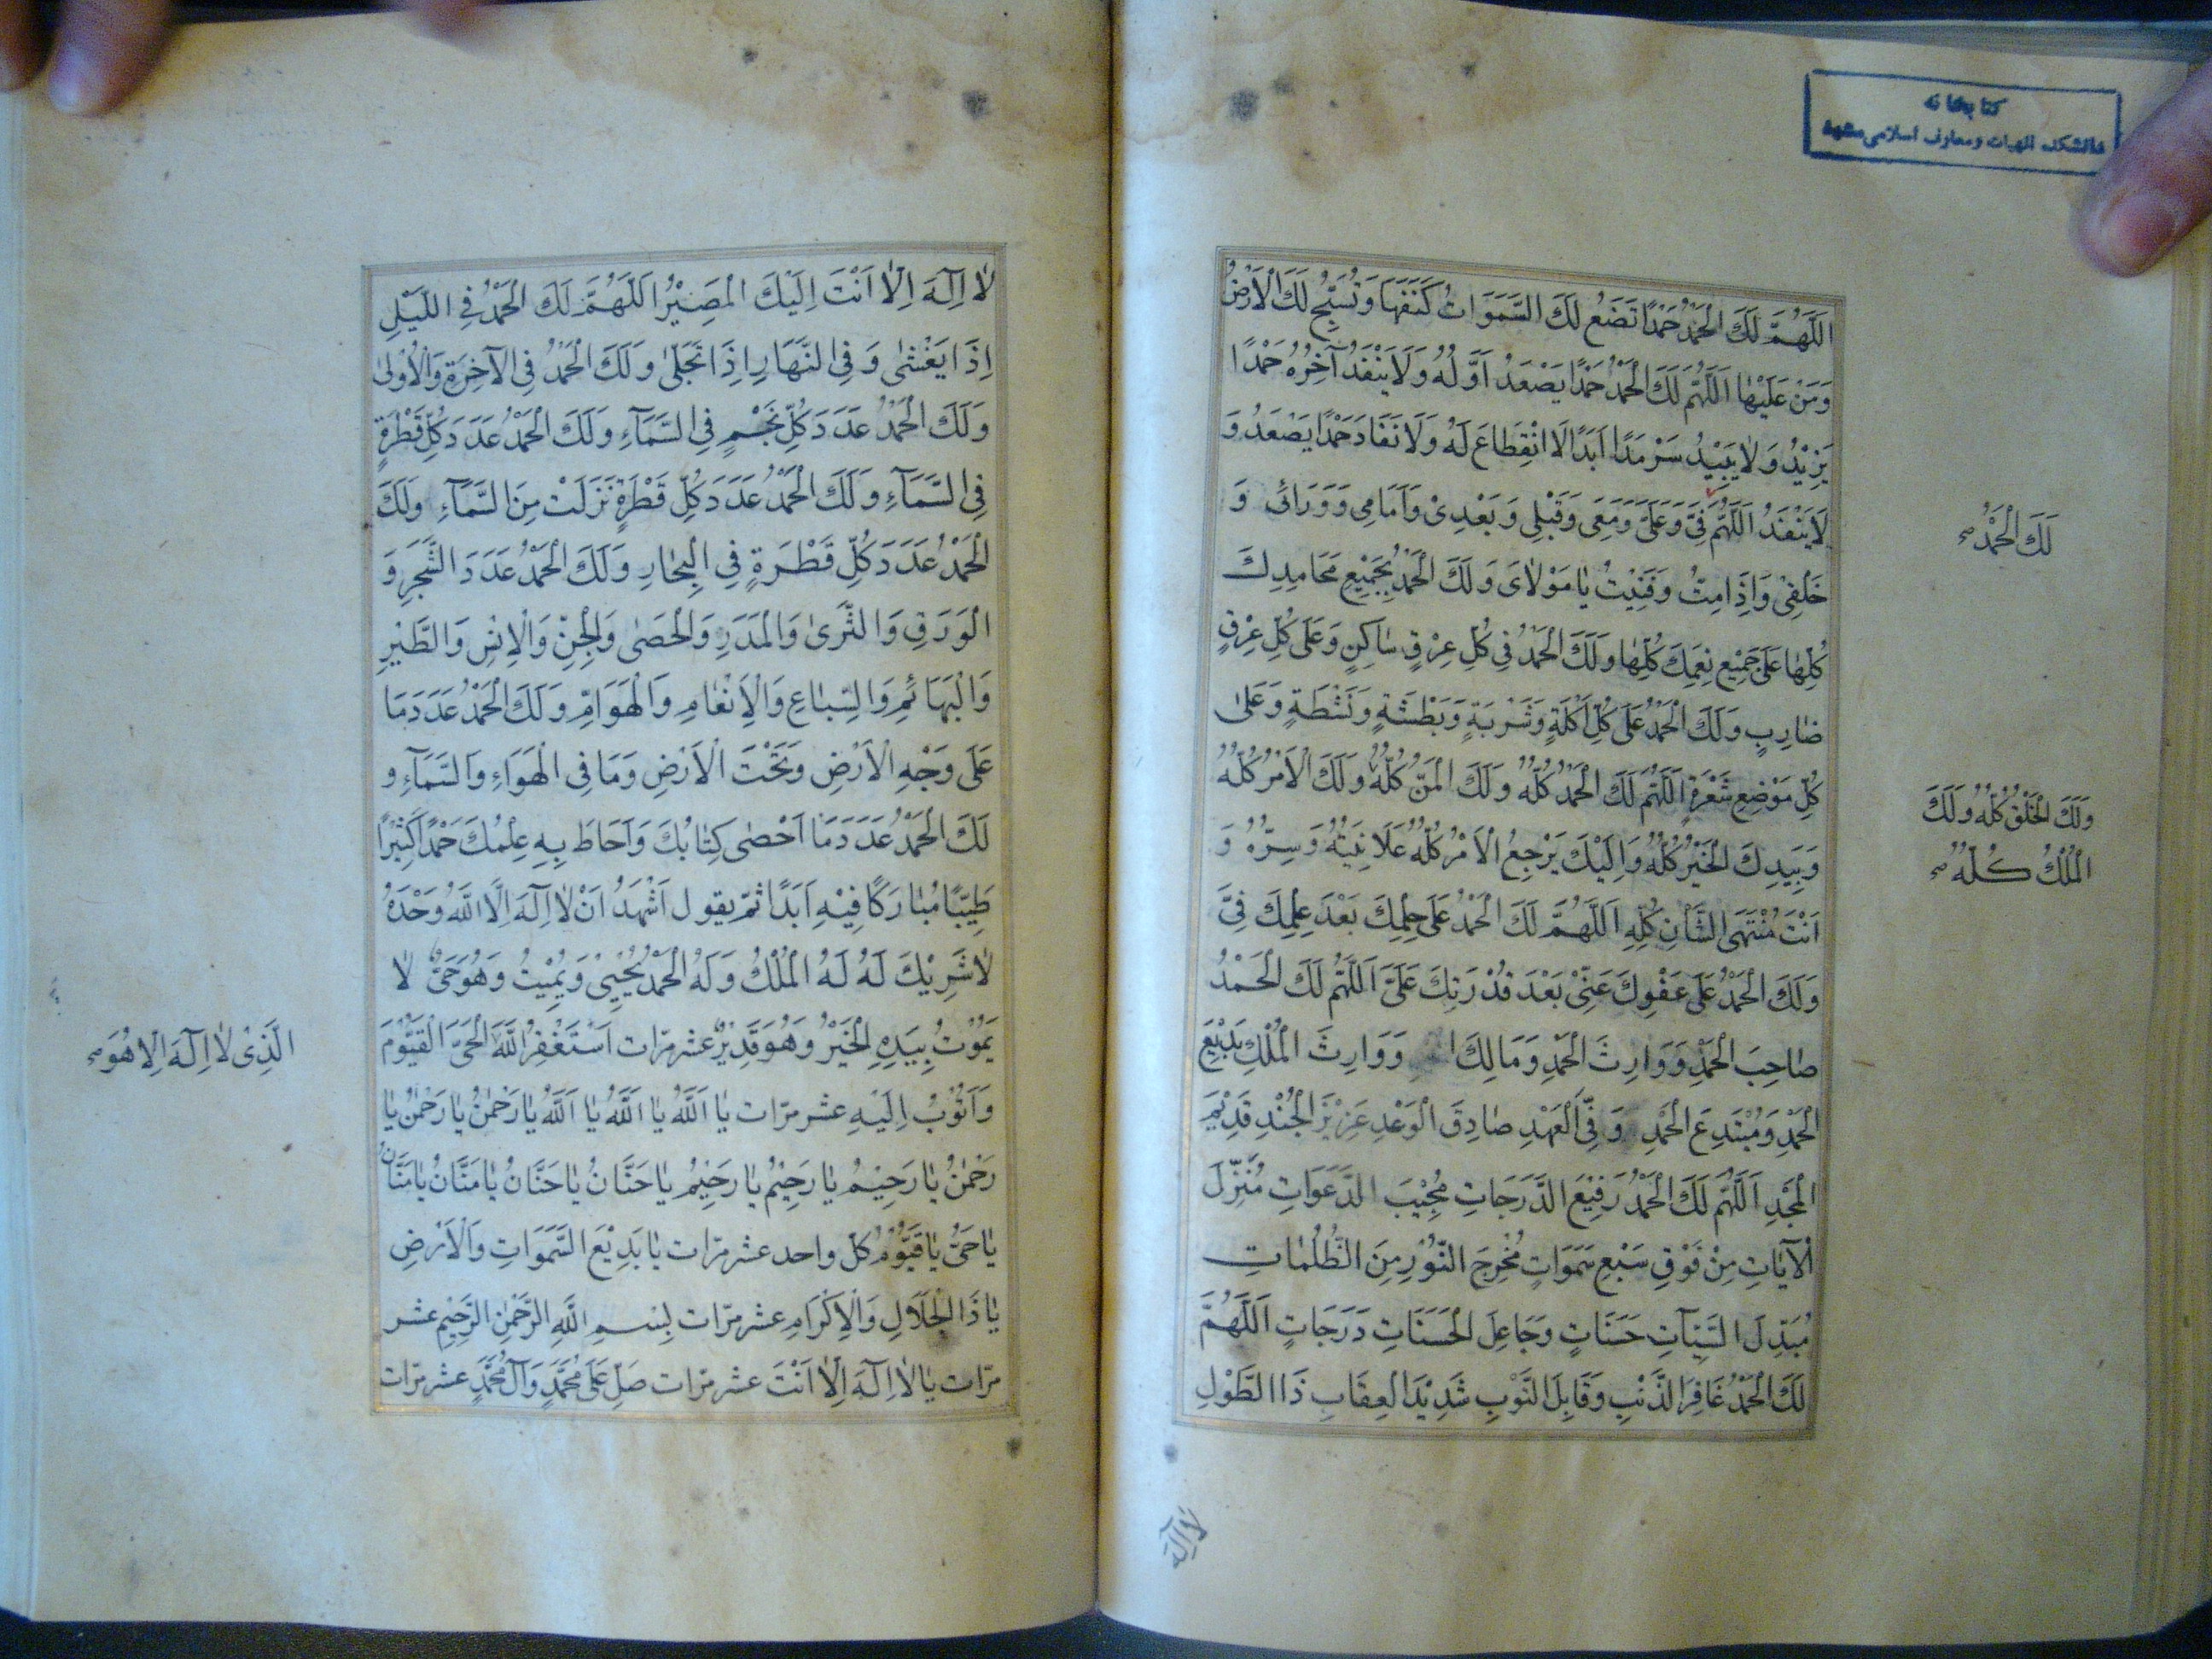 كتابخانه
دانشكده الهيات ومعارف اسلامى مشهد
اَللَّهُمَّ لَكَ الْحَمْدُ حَمْدًا تَضَعُ لَكَ السَّمَوَاتُ كَنَفَهَا وَتُسَبِّحُ لَكَ الْاَرْضُ
وَمَنْ عَلَيْهٰا اَللَّهُمَّ لَكَ الْحَمْدُ حَمْدًا يَصْعَدُ اَوَّلُهُ وَلَا يَنْفَدُ آخِرُهُ حَمْدًا
يَزِيْدُ وَلٰا يَبِيْدُ سَرْمَدًا اَبَدًا لَا انْقِطَاعَ لَهُ وَلَا نَفَادَ حَمْدًا يَصْعَدُ وَ
لَا يَنْفَدُ اَللَّهُمَّ فِيَّ وَعَلَيَّ وَمَعِى وَقَبْلِى وَبَعْدِىْ وَاَمَامِى وَوَرَائى وَ
لَكَ الْحَمْدُ صح
خَلْفِىْ وَاِذَا مِتُّ وَفَنِيْتُ يٰا مَوْلٰاىَ وَلَكَ الْحَمْدُ بِجَمِيْعِ مَحَامِدِكَ
كُلِّهٰا عَلَى جَمِيْعِ نِعَمِكَ كُلِّهٰا وَلَكَ الْحَمْدُ فِى كُلِّ عِرْقٍ سٰاكِنٍ وَعَلَى كُلِّ عِرْقٍ
ضٰارِبٍ وَلَكَ الْحَمْدُ عَلَى كُلِّ اَكْلَةٍ وَشَرْبَةٍ وَبَطْشَةٍ وَنَشْطَةٍ وَعَلىٰ
كُلِّ مَوْضِعِ شَعْرَةٍ اَللَّهُمَّ لَكَ الْحَمْدُ كُلُّهُ وَلَكَ الْمَنُّ كُلُّهُ وَلَكَ الْاَمْرُ كُلُّهُ
وَلَكَ الْخَلْقُ كُلُّهُ وَلَكَ
الْمُلْكُ كُلُّهُ صح
وَبِيَدِكَ الْخَيْرُ كُلُّهُ وَاِلَيْكَ يَرْجِعُ الْاَمْرُ كُلُّهُ عَلَانِيَتُهُ وَسِرُّهُ وَ
اَنْتَ مُنْتَهَى الشَّأْنِ كُلِّهِ اَللَّهُمَّ لَكَ الْحَمْدُ عَلَى حِلْمِكَ بَعْدَ عِلْمِكَ فِىَّ
وَلَكَ الْحَمْدُ عَلَى عَفْوِكَ عَنِّىْ بَعْدَ قُدْرَتِكَ عَلَىَّ اَللَّهُمَّ لَكَ الْحَمْدُ
صٰاحِبَ الْحَمْدِ وَوَارِثَ الْحَمْدِ وَمَالِكَ وَوَارِثَ الْمُلْكِ بَدِيْعَ
الْحَمْدِ وَمُبْتَدِعَ الْحَمْدِ وَفِىَّ الْعَهْدِ صٰادِقَ الْوَعْدِ عَزِيْزَ الْجُنْدِ قَدِيْمَ
الْمَجْدِ اَللَّهُمَّ لَكَ الْحَمْدُ رَفِيْعَ الدَّرَجَاتِ مُجِيْبَ الدَّعَوَاتِ مُنَزِّلَ
الْآيٰاتِ مِنْ فَوْقِ سَبْعِ سَمَوَاتٍ مُخْرِجَ النُّوْرِ مِنَ الظُّلُمٰاتِ
مُبَدِّلَ السَّيِّئاتِ حَسَنَاتٍ وَجَاعِلَ الْحَسَنَاتِ دَرَجَاتٍ اَللَّهُمَّ
لَكَ الْحَمْدُ غَافِرَ الذَّنْبِ وَقَابِلَ التَّوْبِ شَدِيْدَ الْعِقَابِ ذَا الطَّوْلِ
لا اله
لٰا اِلٰهَ اِلّٰا اَنْتَ اِلَيْكَ الْمَصِيْرُ اَللَّهُمَّ لَكَ الْحَمْدُ فِى اللَّيْلِ
اِذَا يَغْشٰى وَفِى النَّهَارِ اِذَا تَجَلّىٰ وَلَكَ الْحَمْدُ فِى الآخِرَةِ وَالْاُوْلىٰ
وَلَكَ الْحَمْدُ عَدَدَ كُلِّ نَجْمٍ فِى السَّمَآءِ وَلَكَ الْحَمْدُ عَدَدَ كُلِّ قَطْرَةٍ
فِى السَّمَآءِ وَلَكَ الْحَمْدُ عَدَدَ كُلِّ قَطْرَةٍ نَزَلَتْ مِنَ السَّمَآءِ وَلَكَ
الْحَمْدُ عَدَدَ كُلِّ قَطْرَةٍ فِى الْبِحٰارِ وَلَكَ الْحَمْدُ عَدَدَ الشَّجَرِ وَ
الْوَرَقِ وَالثَّرىٰ وَالْمَدَرِ وَالْحَصٰى وَالْجِنِّ وَالْاِنْسِ وَالطَّيْرِ
وَالْبَهَائِمِ وَالسِّبٰاعِ وَالْاَنْعٰامِ وَالْهَوَامِّ وَلَكَ الْحَمْدُ عَدَدَ مَا
عَلَى وَجْهِ الْاَرْضِ وَتَحْتَ الْاَرْضِ وَمَا فِى الْهَوَاءِ وَالسَّمَآءِ و
لَكَ الْحَمْدُ عَدَدَ مٰا اَحْصٰى كِتٰابُكَ وَاَحَاطَ بِهِ عِلْمُكَ حَمْدًا كَثِيْرًا
طَيِّبًا مُبٰارَكًا فِيْهِ اَبَدًا ثمّ يقول اَشْهَدُ اَنْ لٰا اِلٰهَ اِلَّا اللّٰهُ وَحْدَهُ
لٰا شَرِيْكَ لَهُ لَهُ الْمُلْكُ وَلَهُ الْحَمْدُ يُحْيِىْ وَيُمِيْتُ وَهُوَ حَىٌّ لٰا
يَمُوْتُ بِيَدِهِ الْخَيْرُ وَهُوَ قَدِيْرٌ عشر مرّات اَسْتَغْفِرُ اللّٰهَ الْحَىَّ الْقَيُّوْمَ
الَّذِىْ لٰا اِلٰهَ اِلّا هُوَ صح
وَاَتُوْبُ اِلَيْهِ عشر مرّات يٰا اَللّٰهُ يٰا اَللّٰهُ يٰا اَللّٰهُ يٰا رَحْمٰنُ يٰا رَحْمٰنُ يٰا
رَحْمٰنُ يٰا رَحِيْمُ يٰا رَحِيْمُ يٰا رَحِيْمُ يٰا حَنَّانُ يٰا حَنَّانُ يٰا مَنَّانُ يٰا مَنَّانُ
يٰا حَىُّ يٰا قَيُّوْمُ كلّ واحد عشر مرّات يٰا بَدِيْعَ السَّمَوَاتِ وَالْاَرْضِ
يٰا ذَا الْجَلَالِ وَالْاِكْرَامِ عشر مرّات بِسْمِ اللّٰهِ الرَّحْمٰنِ الرَّحِيْمِ عشر
مرّات يٰا لٰا اِلٰهَ اِلّٰا اَنْتَ عشر مرّات صَلِّ عَلَى مُحَمَّدٍ وَآلِ مُحَمَّدٍ عشر مرّات